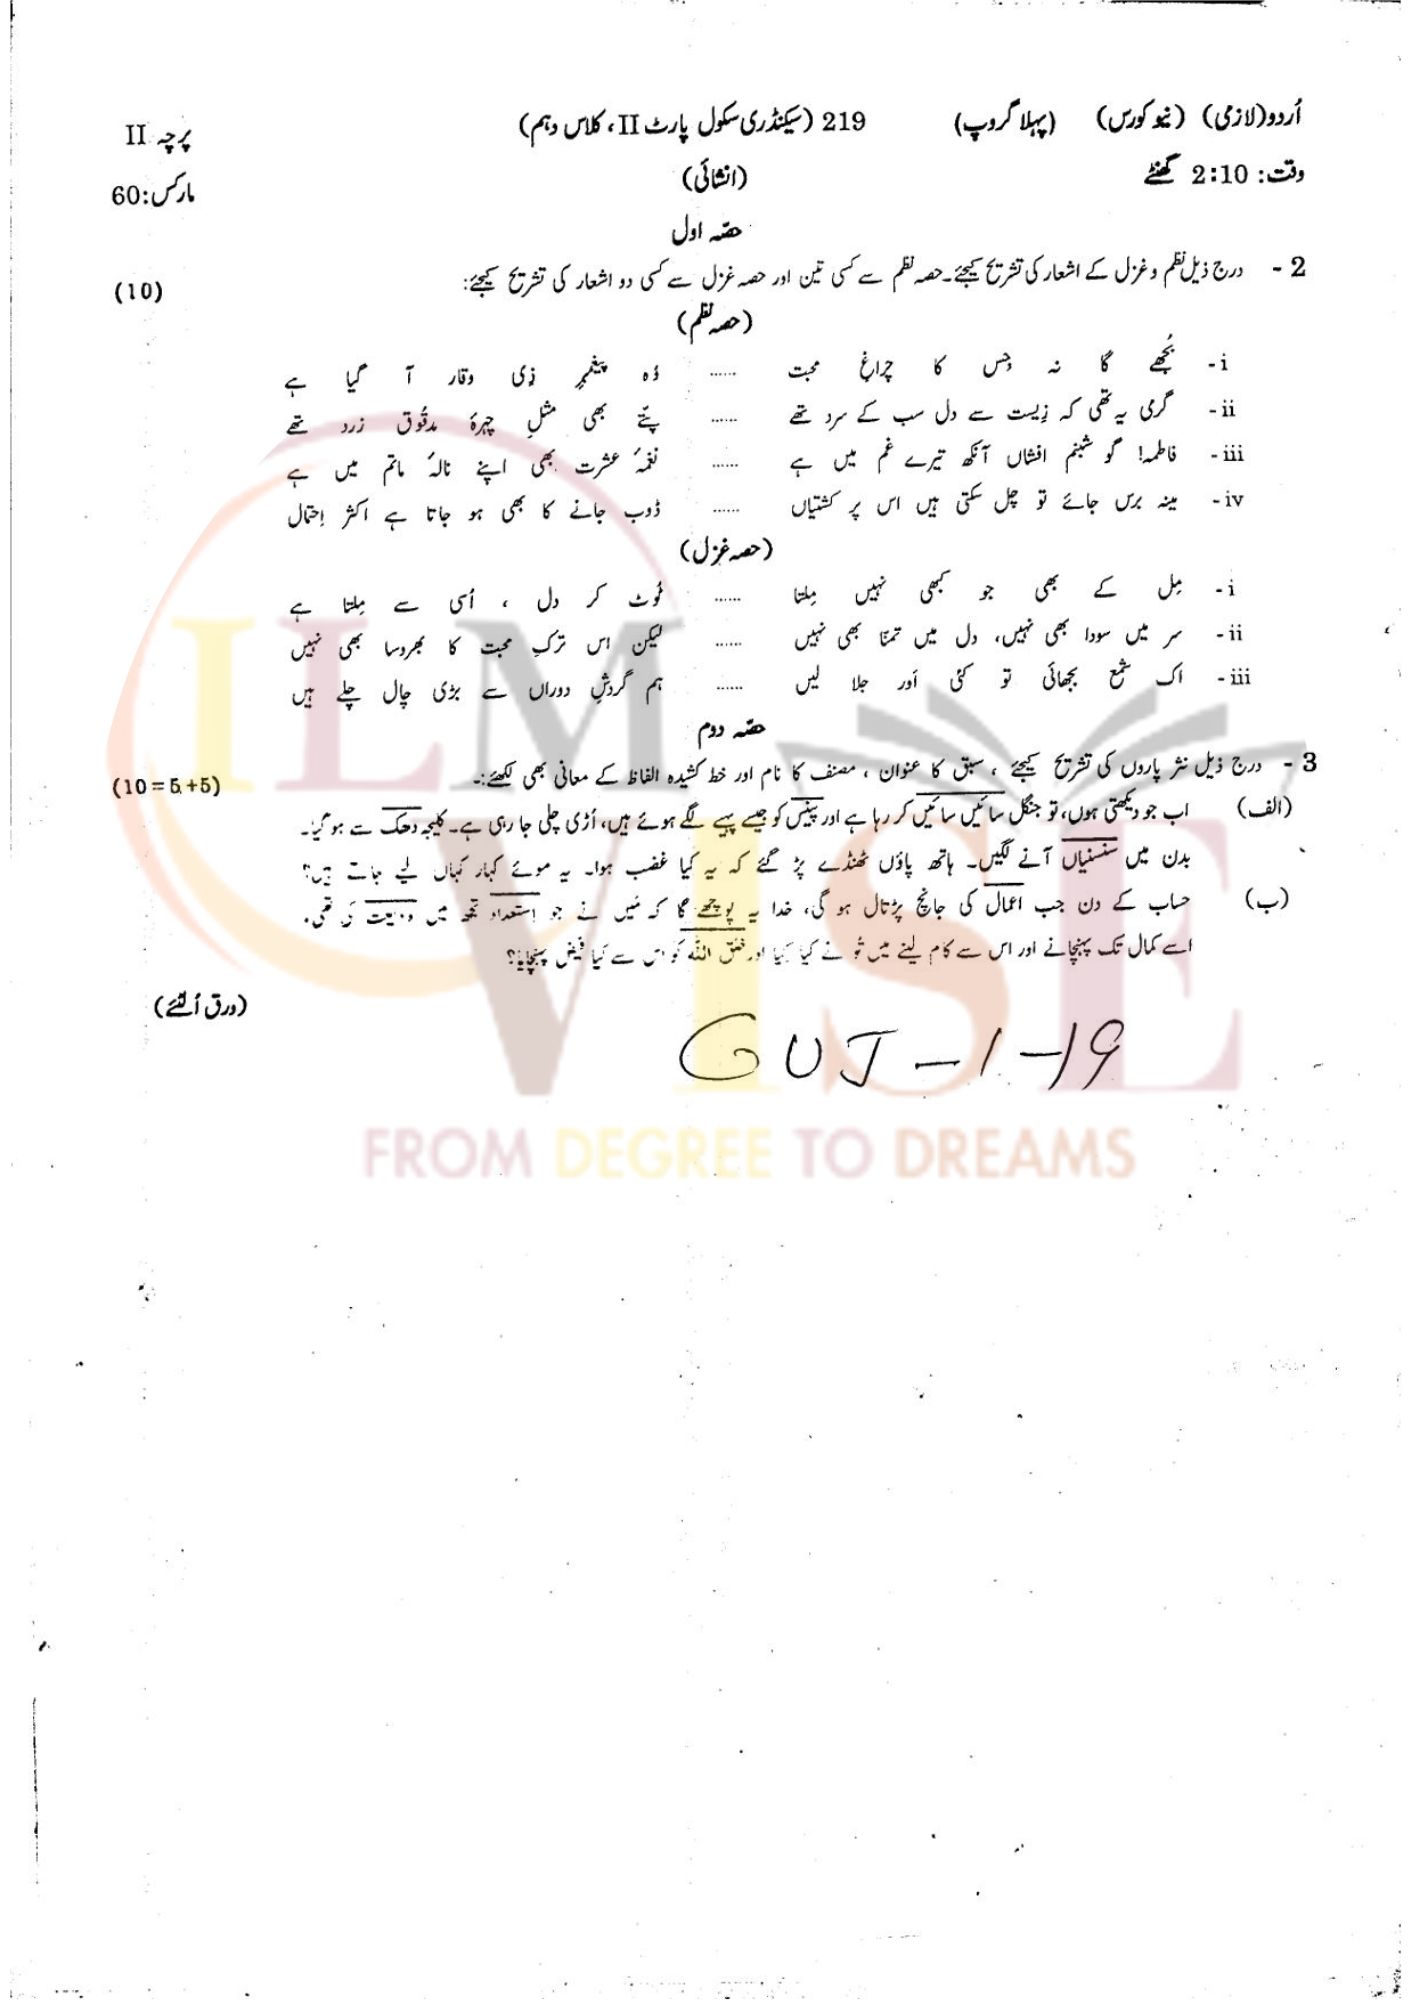 اُردو(لازمی) (نیوکورس) (پہلاگروپ) 219 (سیکنڈری سکول پارٹ II، کلاس دہم) پرچہ II
وقت: 2:10 گھنٹے (انشائی) مارکس:60
حصّہ اول
2 - درج ذیل نظم و غزل کے اشعار کی تشریح کیجئے۔ حصہ نظم سے کسی تین اور حصہ غزل سے کسی دو اشعار کی تشریح کیجئے: (10)
(حصہ نظم)
i- بُجھے گا نہ جس کا چراغِ محبت ...... وُہ پیغمبرِ ذِی وقار آ گیا ہے
ii- گرمی یہ تھی کہ زِیست سے دل سب کے سرد تھے ...... پتّے بھی مثلِ چہرۂ مدقُوق زرد تھے
iii- فاطمہ! گو شبنم افشاں آنکھ تیرے غم میں ہے ...... نغمۂ عشرت بھی اپنے نالۂ ماتم میں ہے
iv- مینہ برس جائے تو چل سکتی ہیں اس پر کشتیاں ...... ڈوب جانے کا بھی ہو جاتا ہے اکثر اِحتمال
(حصہ غزل)
i- مِل کے بھی جو کبھی نہیں مِلتا ...... ٹُوٹ کر دل ، اُسی سے مِلتا ہے
ii- سر میں سودا بھی نہیں، دل میں تمنّا بھی نہیں ...... لیکن اس ترکِ محبت کا بھروسا بھی نہیں
iii- اک شمع بجھائی تو کئی اَور جلا لیں ...... ہم گردشِ دوراں سے بڑی چال چلے ہیں
حصّہ دوم
3 - درج ذیل نثر پاروں کی تشریح کیجئے ، سبق کا عنوان ، مصنف کا نام اور خط کشیدہ الفاظ کے معانی بھی لکھئے:۔ (10=5+5)
(الف) اب جو دیکھتی ہوں، تو جنگل سائیں سائیں کر رہا ہے اور پینس کو جیسے پہیے لگے ہوئے ہیں، اُڑی چلی جا رہی ہے۔ کلیجہ دھک سے ہو گیا۔
بدن میں سنسنیاں آنے لگیں۔ ہاتھ پاؤں ٹھنڈے پڑ گئے کہ یہ کیا غضب ہوا۔ یہ موئے کہار کہاں لیے جاتے ہیں؟
(ب) حساب کے دن جب اعمال کی جانچ پڑتال ہو گی، خدا یہ پوچھے گا کہ مَیں نے جو اِستعداد تجھ میں ودیعت کی تھی،
اسے کمال تک پہنچانے اور اس سے کام لینے میں تُو نے کیا کیا اور خلق اللہ کو اس سے کیا فیض پہنچایا؟
(ورق اُلٹئے)
GUJ-1-19
ILM
VISE
FROM DEGREE TO DREAMS